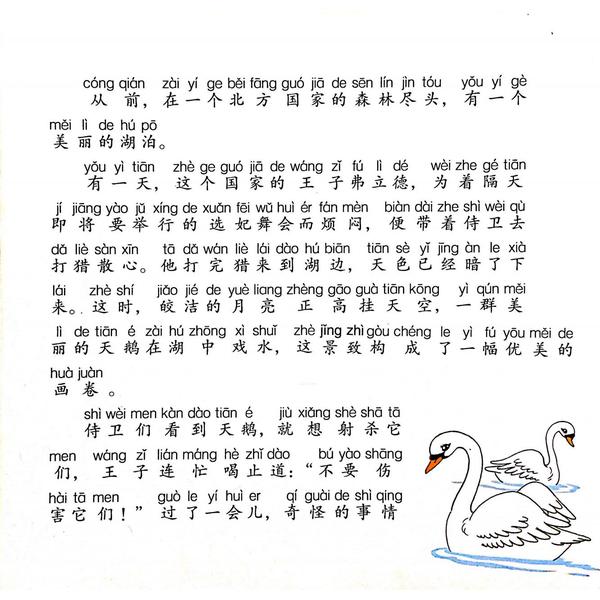 cóng qián zài yí ge běi fāng guó jiā de sēn lín jìn tóu yǒu yí gè
从前，在一个北方国家的森林尽头，有一个
měi lì de hú pō
美丽的湖泊。
yǒu yì tiān zhè ge guó jiā de wáng zǐ fú lì dé wèi zhe gé tiān
有一天，这个国家的王子弗立德，为着隔天
jí jiāng yào jǔ xíng de xuǎn fēi wǔ huì ér fán mèn biàn dài zhe shì wèi qù
即将要举行的选妃舞会而烦闷，便带着侍卫去
dǎ liè sàn xīn tā dǎ wán liè lái dào hú biān tiān sè yǐ jīng àn le xià
打猎散心。他打完猎来到湖边，天色已经暗了下
lái zhè shí jiǎo jié de yuè liang zhèng gāo guà tiān kōng yì qún měi
来。这时，皎洁的月亮正高挂天空，一群美
lì de tiān é zài hú zhōng xì shuǐ zhè jǐng zhì gòu chéng le yì fú yōu měi de
丽的天鹅在湖中戏水，这景致构成了一幅优美的
huà juàn
画卷。
shì wèi men kàn dào tiān é jiù xiǎng shè shā tā
侍卫们看到天鹅，就想射杀它
men wáng zǐ lián máng hè zhǐ dào bú yào shāng
们，王子连忙喝止道：“不要伤
hài tā men guò le yí huì er qí guài de shì qing
害它们！”过了一会儿，奇怪的事情